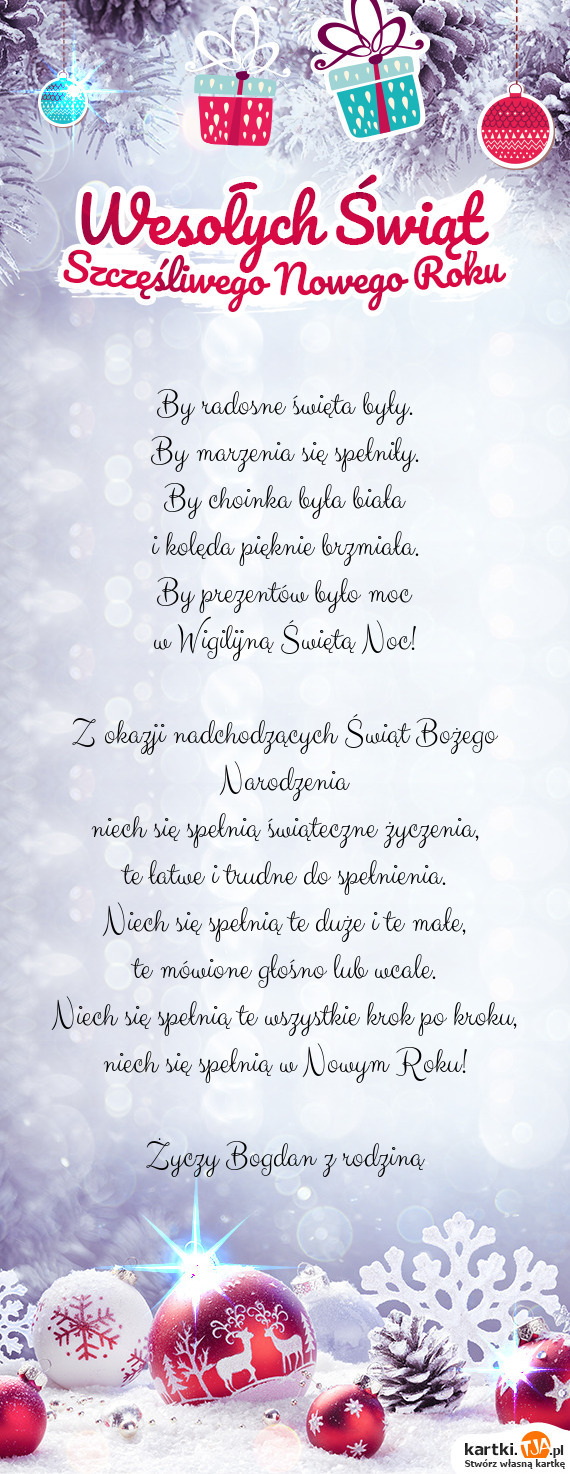 Wesołych Świąt
Szczęśliwego Nowego Roku
By radosne święta były.
By marzenia się spełniły.
By choinka była biała
i kolęda pięknie brzmiała.
By prezentów było moc
w Wigilijną Świętą Noc!
Z okazji nadchodzących Świąt Bożego
Narodzenia
niech się spełnią świąteczne życzenia,
te łatwe i trudne do spełnienia.
Niech się spełnią te duże i te małe,
te mówione głośno lub wcale.
Niech się spełnią te wszystkie krok po kroku,
niech się spełnią w Nowym Roku!
Życzy Bogdan z rodziną
kartki.TJA.pl
Stwórz własną kartkę